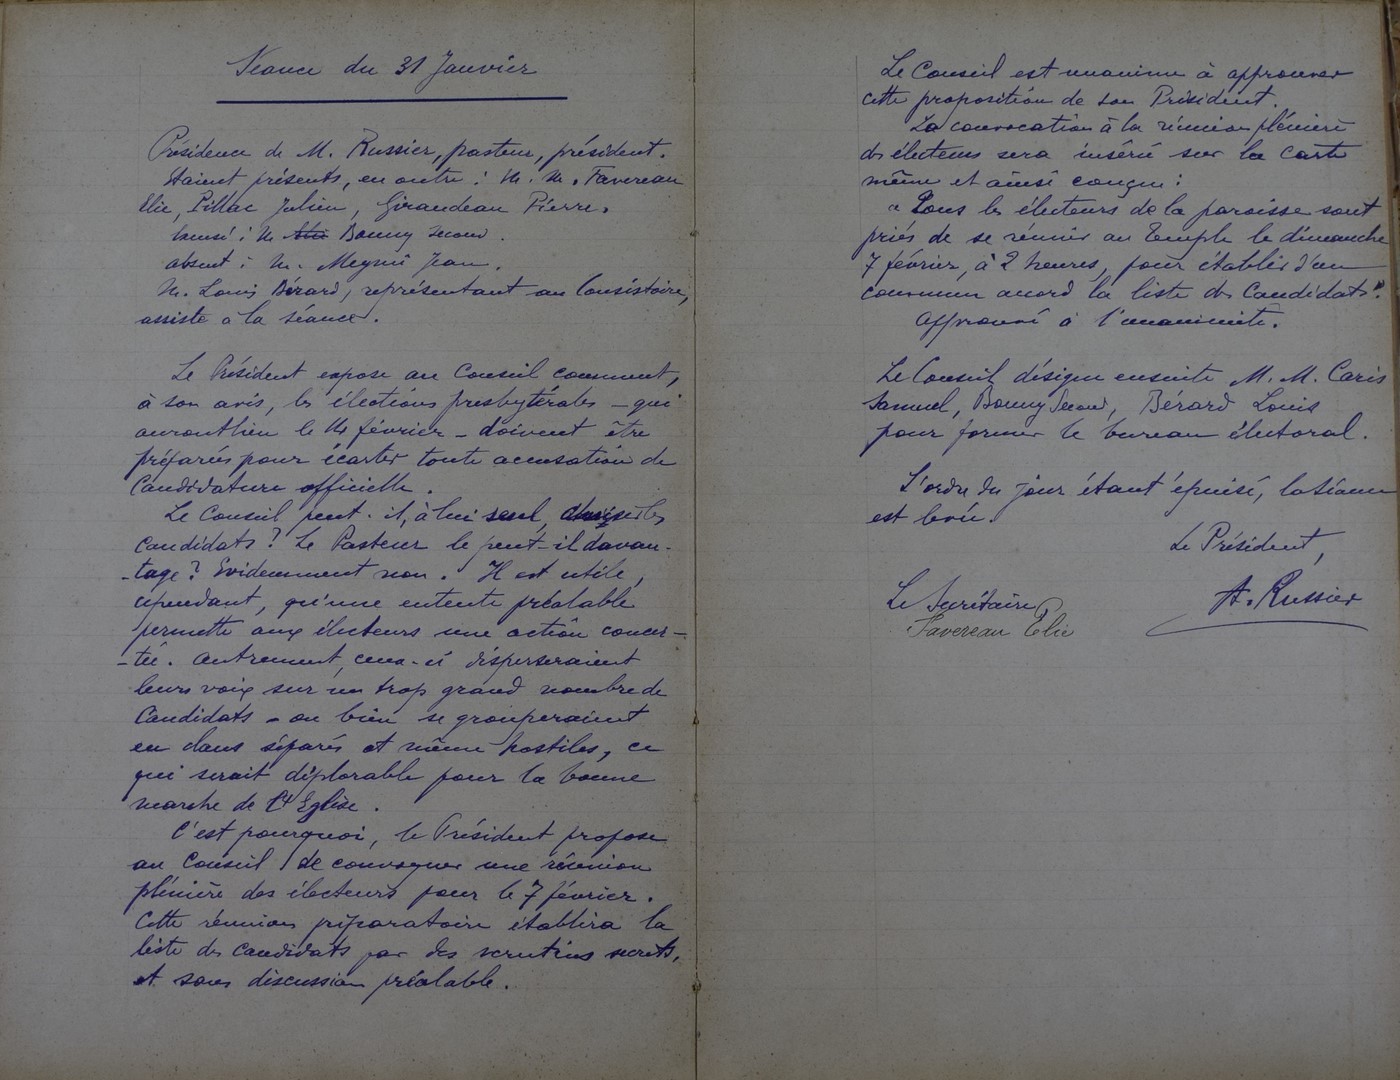 Séance du 31 Janvier
Présidence de M. Russier, pasteur, président.
Etaient présents, en outre : M. M. Favereau
Elie, Pillac Julien, Giraudeau Pierre.
Excusé : M Bonny Second.
absent : M. Meynié Jean.
M. Louis Bérard, représentant au Consistoire,
assiste à la séance.
Le Président expose au Conseil comment,
à son avis, les élections presbytérales – qui
auront lieu le 14 février – doivent être
préparées pour écarter toute accusation de
Candidature officielle.
Le Conseil peut-il, à lui seul, choisir les
candidats ? Le Pasteur le peut-il davan-
-tage ? Evidemment non. Il est utile,
cependant, qu'une entente préalable
permette aux électeurs une action concer-
-tée. Autrement, ceux-ci disperseraient
leurs voix sur un trop grand nombre de
Candidats – ou bien se grouperaient
en clans séparés et même hostiles, ce
qui serait déplorable pour la bonne
marche de l'Eglise.
C'est pourquoi, le Président propose
au Conseil de convoquer une réunion
plénière des électeurs pour le 7 février.
Cette réunion préparatoire établira la
liste des Candidats par des scrutins secrets,
et sans discussion préalable.
Le Conseil est unanime à approuver
cette proposition de son Président.
La convocation à la réunion plénière
des électeurs sera insérée sur la carte
même et ainsi conçue :
« Tous les électeurs de la paroisse sont
priés de se réunir au Temple le dimanche
7 février, à 2 heures, pour établir d'un
commun accord la liste des Candidats".
Approuvé à l'unanimité.
Le Conseil désigne ensuite M. M. Caris
Samuel, Bonny Second, Bérard Louis
pour former le bureau électoral.
L'ordre du jour étant épuisé, la séance
est levée.
Le Président,
A. Russier
Le Secrétaire
Favereau Elie